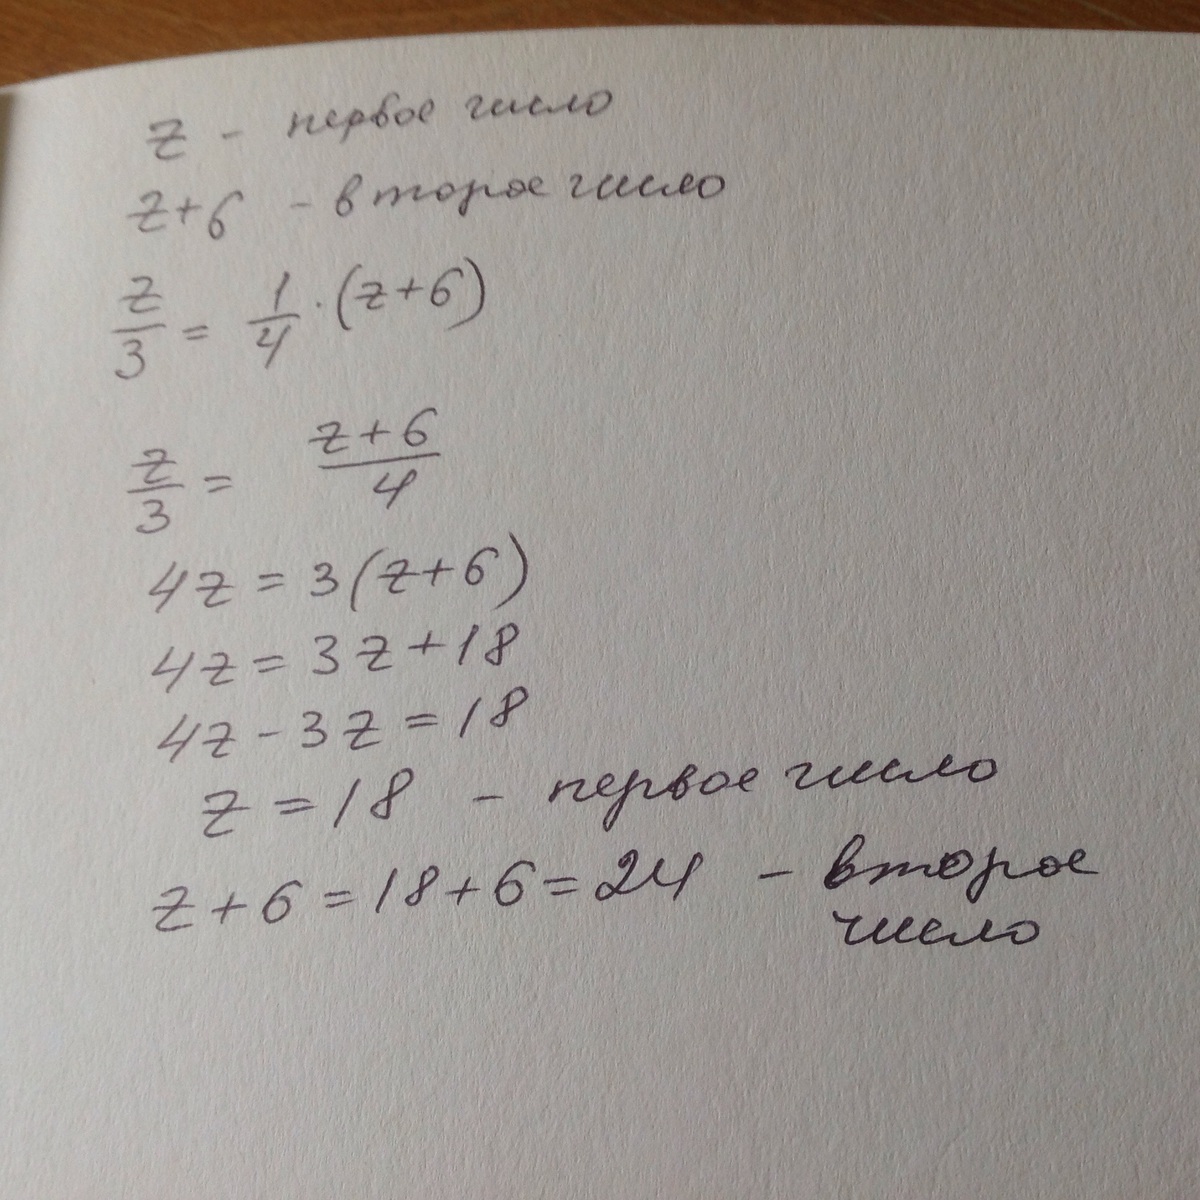 z - первое число
z+6 - второе число
z/3 = 1/4 · (z+6)
z/3 = (z+6)/4
4z = 3(z+6)
4z = 3z+18
4z - 3z = 18
z = 18 - первое число
z+6 = 18+6 = 24 - второе
число